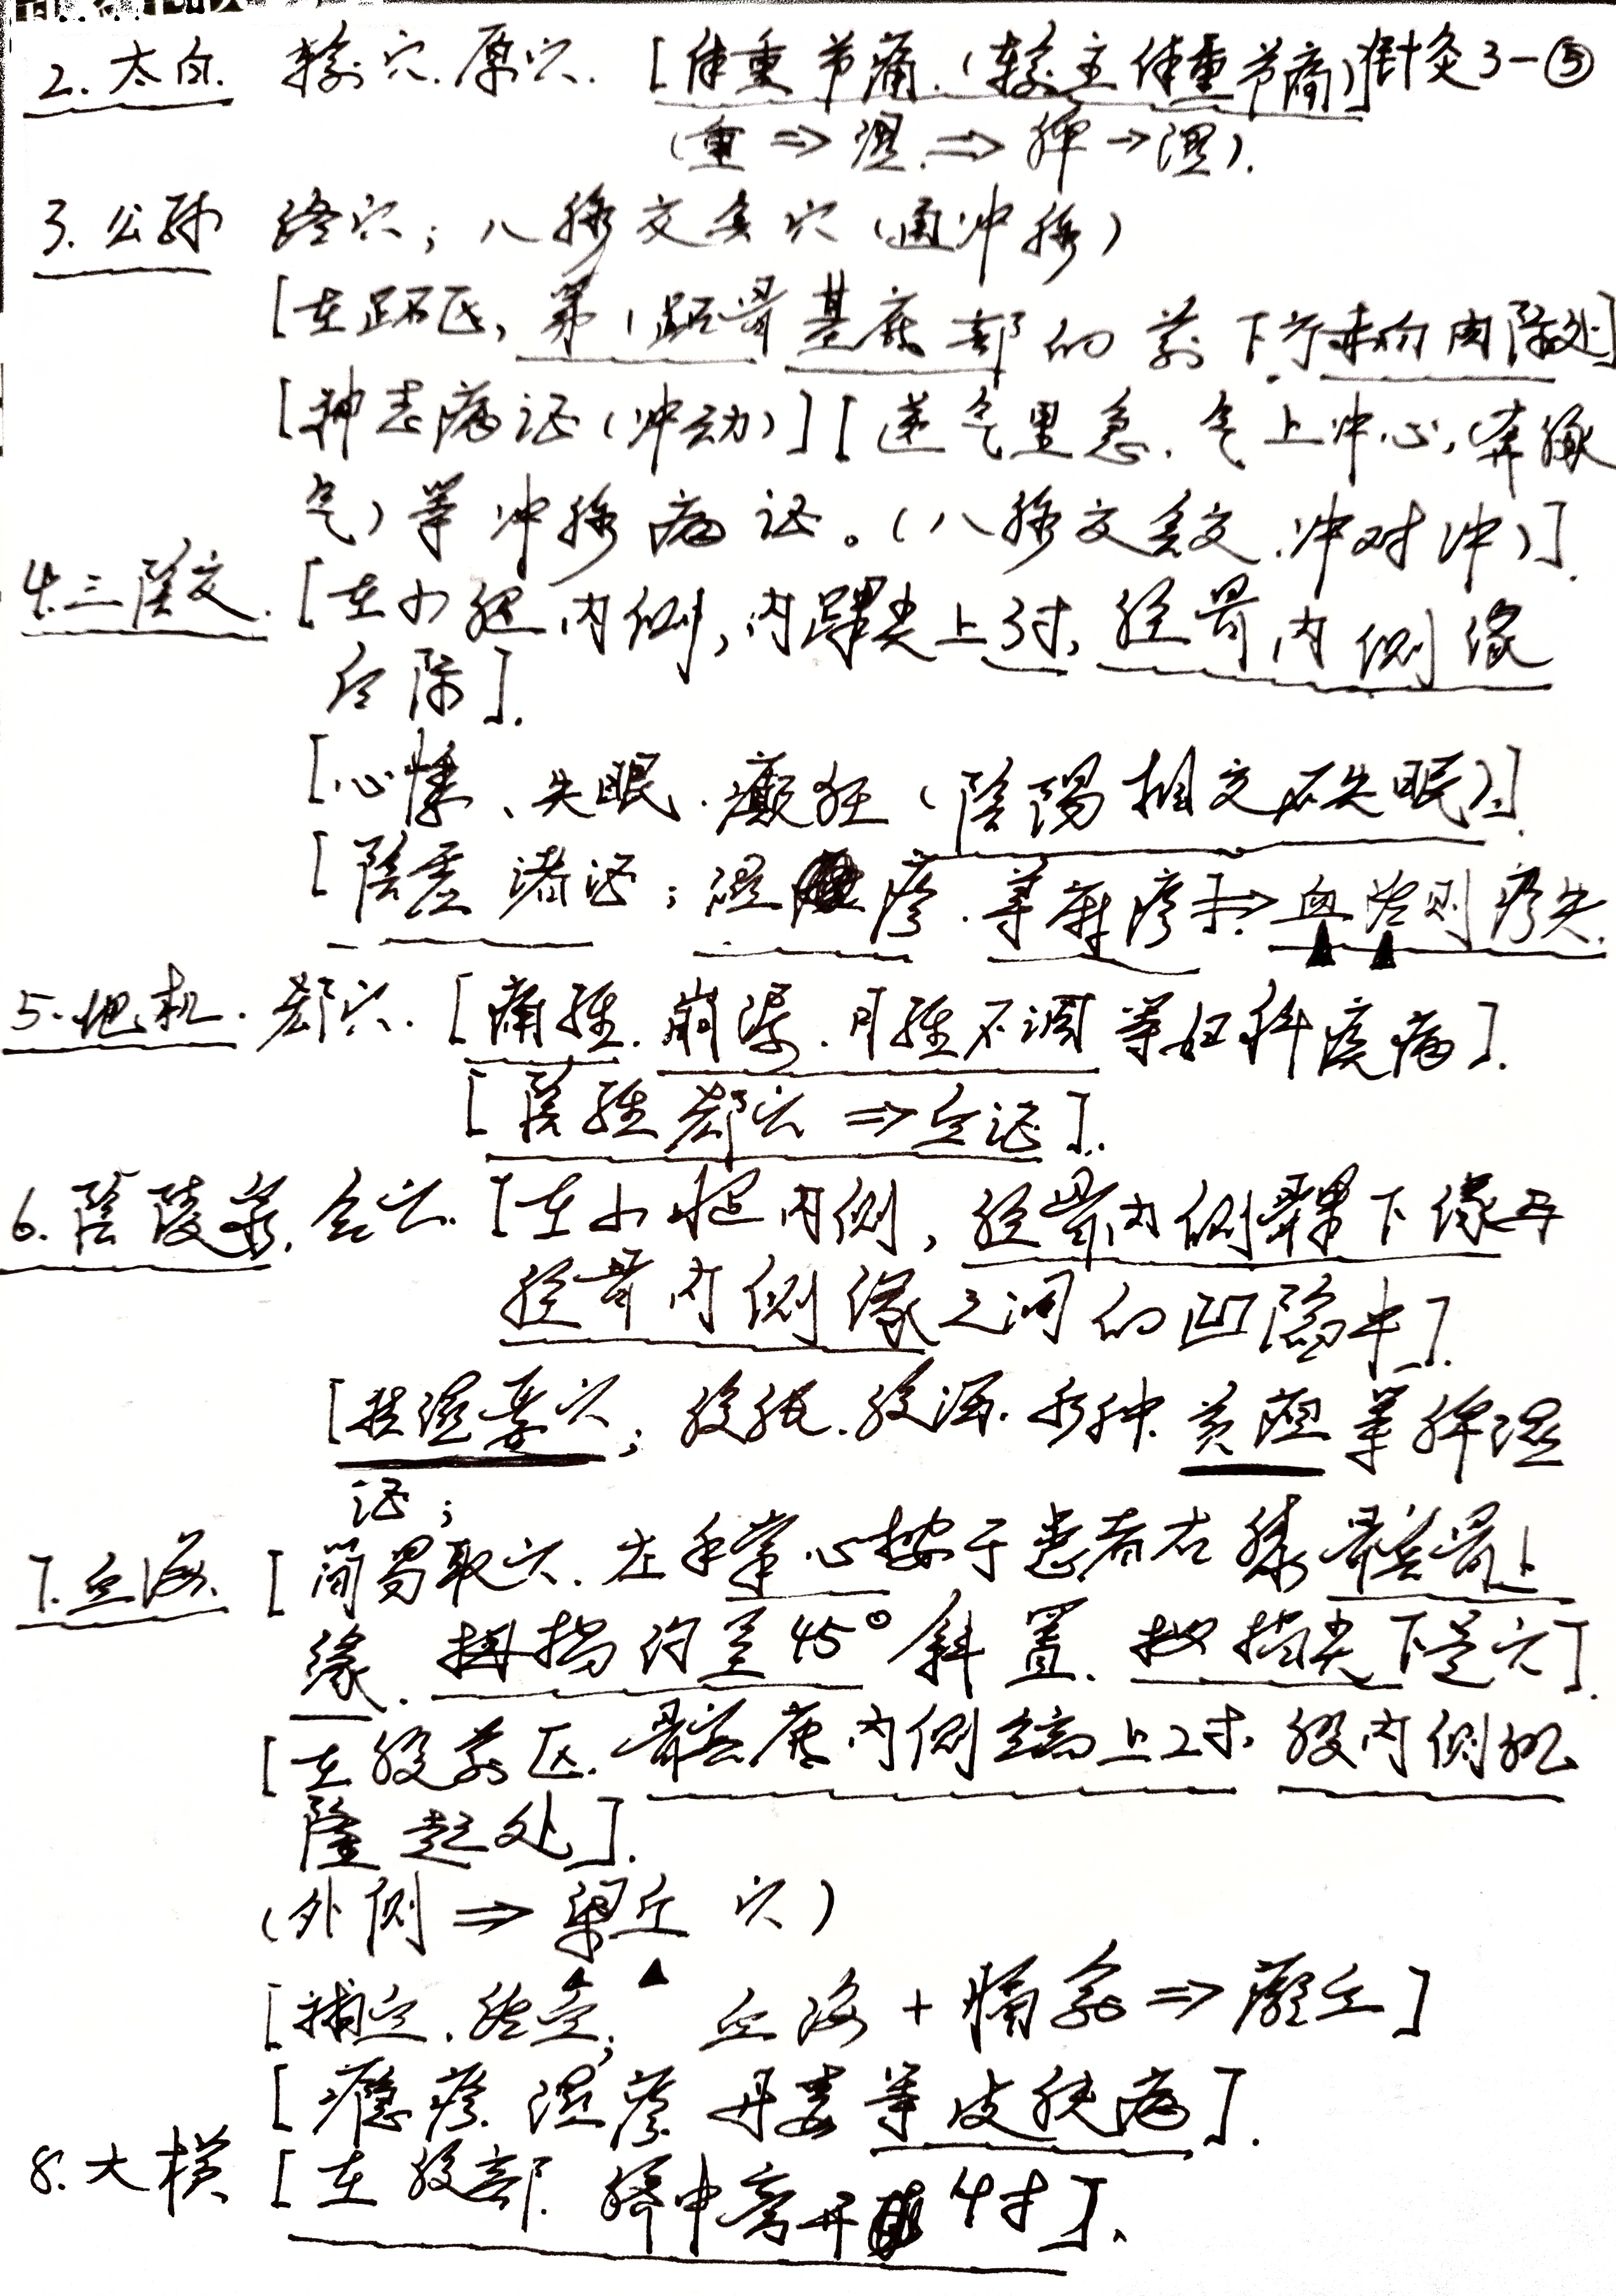 2. 太白. 输穴. 原穴. [体重节痛. (输主体重节痛)] 针灸3-⑤
(重⇒湿.⇒脾→湿).
3. 公孙 络穴; 八脉交会穴(通冲脉)
[在跖区, 第1跖骨基底部的前下方赤白肉际处]
[神志病证(冲动)] [逆气里急. 气上冲心, (奔豚
气) 等冲脉病证。(八脉交会交. 冲对冲)].
4. 三阴交. [在小腿内侧, 内踝尖上3寸, 胫骨内侧缘
后际].
[心悸、失眠. 癫狂 (阴阳相交不失眠)].
[阴虚诸证; 湿疹. 荨麻疹⇒ 血治则疹失.
5. 地机. 郄穴. [痛经. 崩漏. 月经不调等妇科疾病].
[阴经郄穴⇒血证].
6. 陰陵泉. 合穴. [在小腿内侧, 胫骨内侧髁下缘与
胫骨内侧缘之间的凹陷中].
[祛湿要穴; 腹胀. 腹泻. 水肿. 黄疸等脾湿
证;
7. 血海. [简易取穴. 左手掌心按于患者右膝髌骨上
缘. 拇指约呈45°斜置. 拇指尖下是穴].
[在股前区. 髌底内侧端上2寸, 股内侧肌
隆起处].
(外侧⇒梁丘穴)
[补血. 活血; 血海+膈俞⇒瘀血]
[瘾疹. 湿疹. 丹毒等皮肤病].
8. 大横 [在腹部. 脐中旁开4寸].